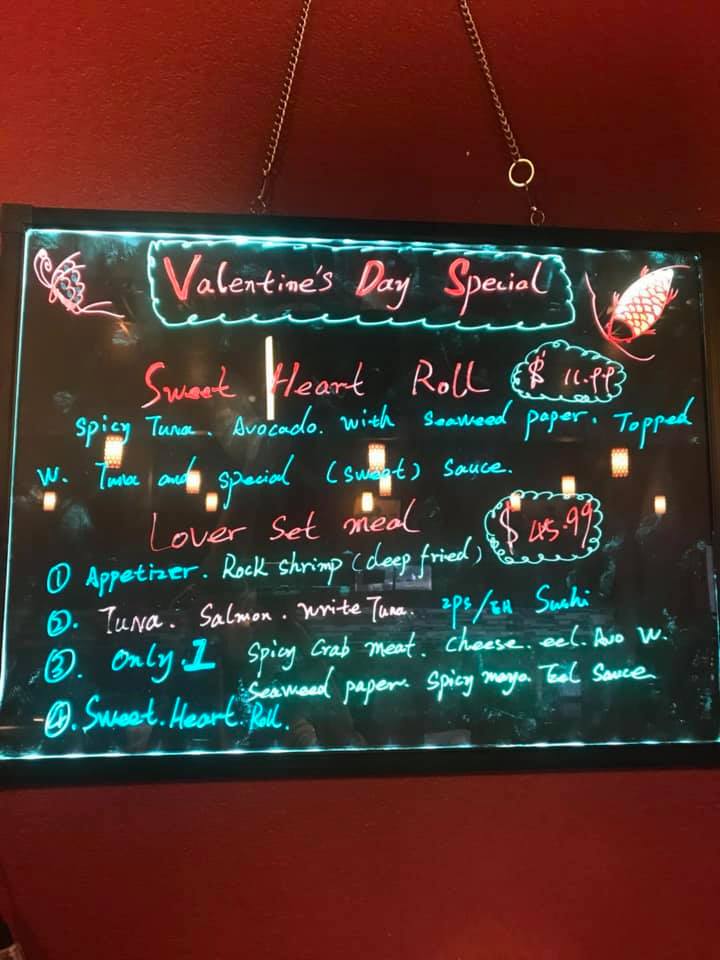 Valentine's Day Special
Sweet Heart Roll $11.99
Spicy Tuna. Avocado. with Seaweed paper. Topped
w. Tuna and special (sweet) sauce.
Lover set meal $45.99
① Appetizer. Rock shrimp (deep fried)
②. Tuna. Salmon. write Tuna. 2ps/EH Sushi
③. Only.1 Spicy Crab meat. Cheese. eel. Avo w.
Seaweed paper. Spicy mayo. Eel Sauce
④. Sweet. Heart. Roll.